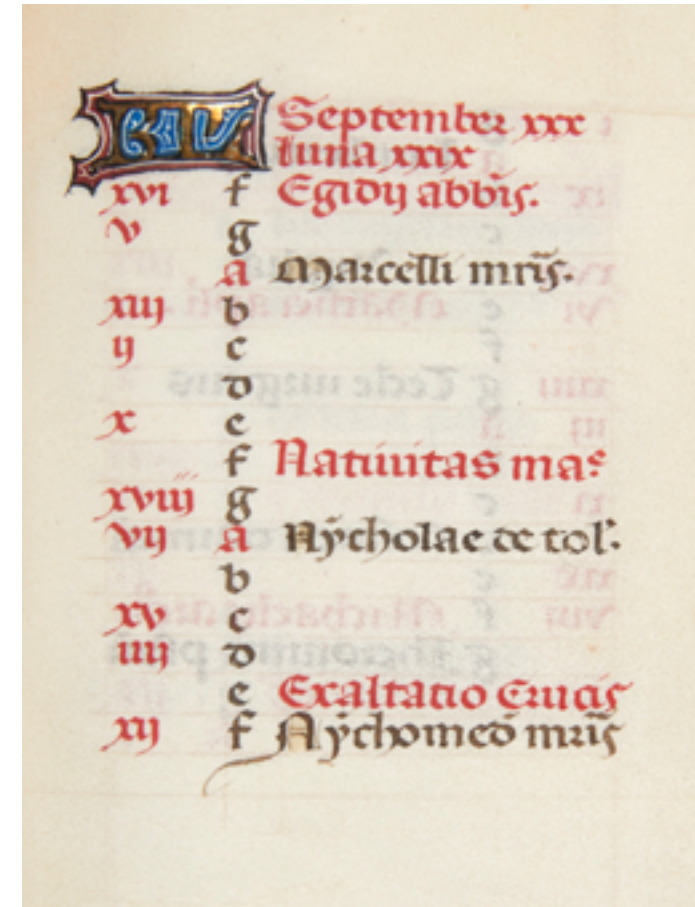 September xxx
luna xxix
xvi f Egidij abbīs.
v g
a Marcelli mrīs.
xiij b
ij c
d
x e
f Natiuitas maᵉ
xviij g
vij a Nÿcholae de tolˑ
b
xv c
iiij d
e Exaltatio crucis
xij f Nÿchomed mrīs